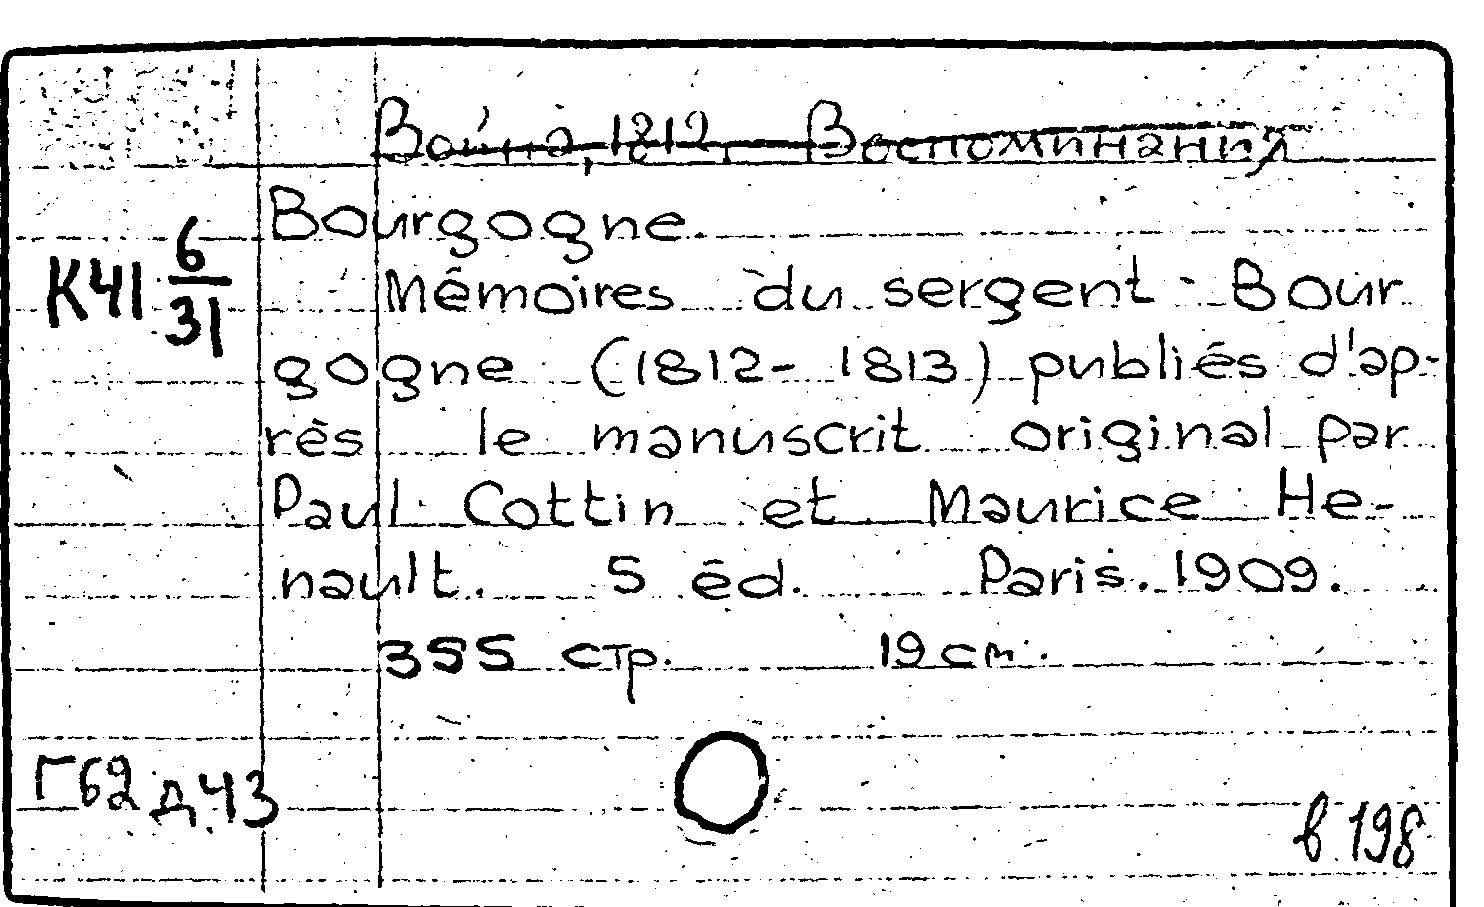 Война, 1812. Воспоминания
Bourgogne.
К41 6/31
Mémoires du sergent Bour
gogne (1812-1813) publiés d'ap-
rès le manuscrit original par
Paul Cottin et Maurice He-
nault. 5 éd. Paris. 1909.
355 стр. 19 см.
Г62 д.43
в 198